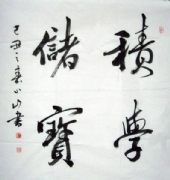 積學
儲寶
己丑之春小山書